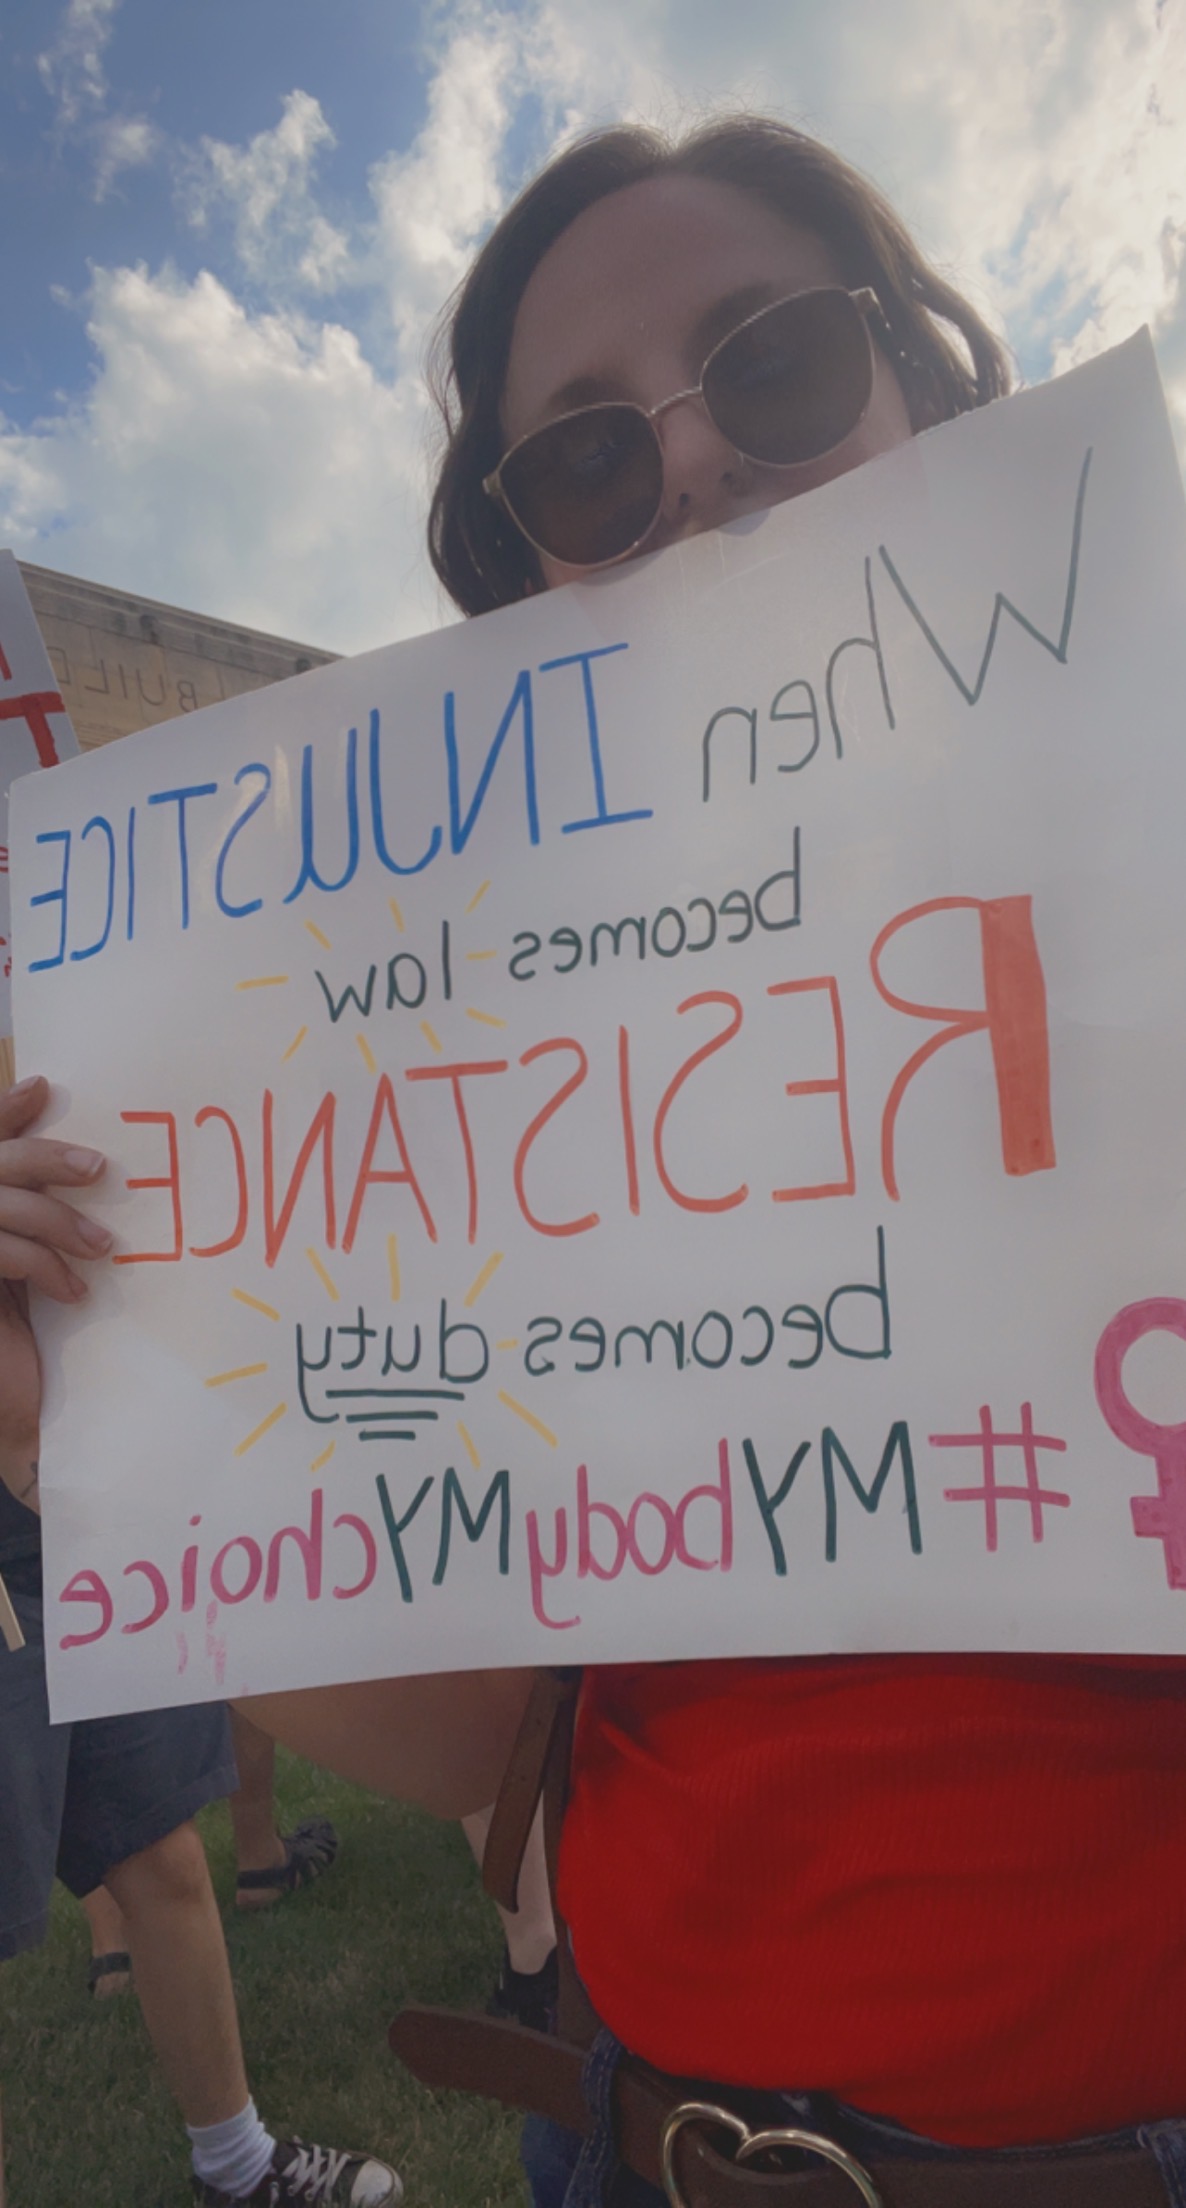 When INJUSTICE
becomes law
RESISTANCE
becomes duty
#MYbodyMYchoice
BUILD
T